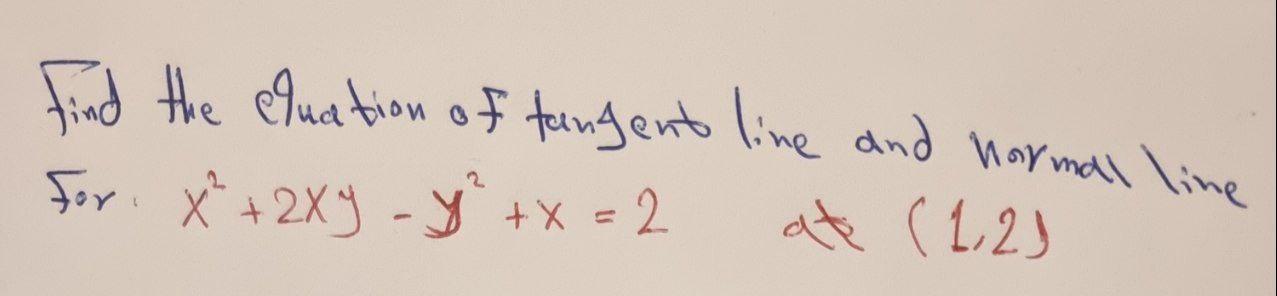 Find the equation of tangent line and normal line
For. x² + 2xy - y² + x = 2 at (1,2)